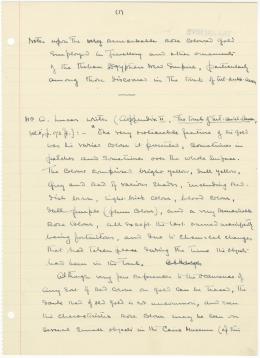 (1)
Notes upon the very remarkable Rose Coloured Gold
Employed in Jewellery and other ornaments
of the Theban Egyptian New Empire, particularly
among those discovered in the Tomb of Tut.ankh.Amen
Mr A. Lucas writes (Appendix II, The Tomb of Tut.ankh.Amen,
"The very noticeable feature of the gold
was the varied colour it presented, sometimes in
patches and sometimes over the whole surface.
The colours comprised bright yellow, dull yellow,
grey and red of various shades, including
light brick colour, blood colour,
dull purple (plum colour), and a very remarkable
Rose colour, all except the last named
being fortuitous, and due to chemical changes
that had taken place during the time the objects
had been in the Tomb.
Although very few references to the occurrence of
any sort of red colour on gold can be traced, the
of old gold is not uncommon, and even
the characteristic Rose colour may be seen on
several small objects in the Cairo Museum (of the